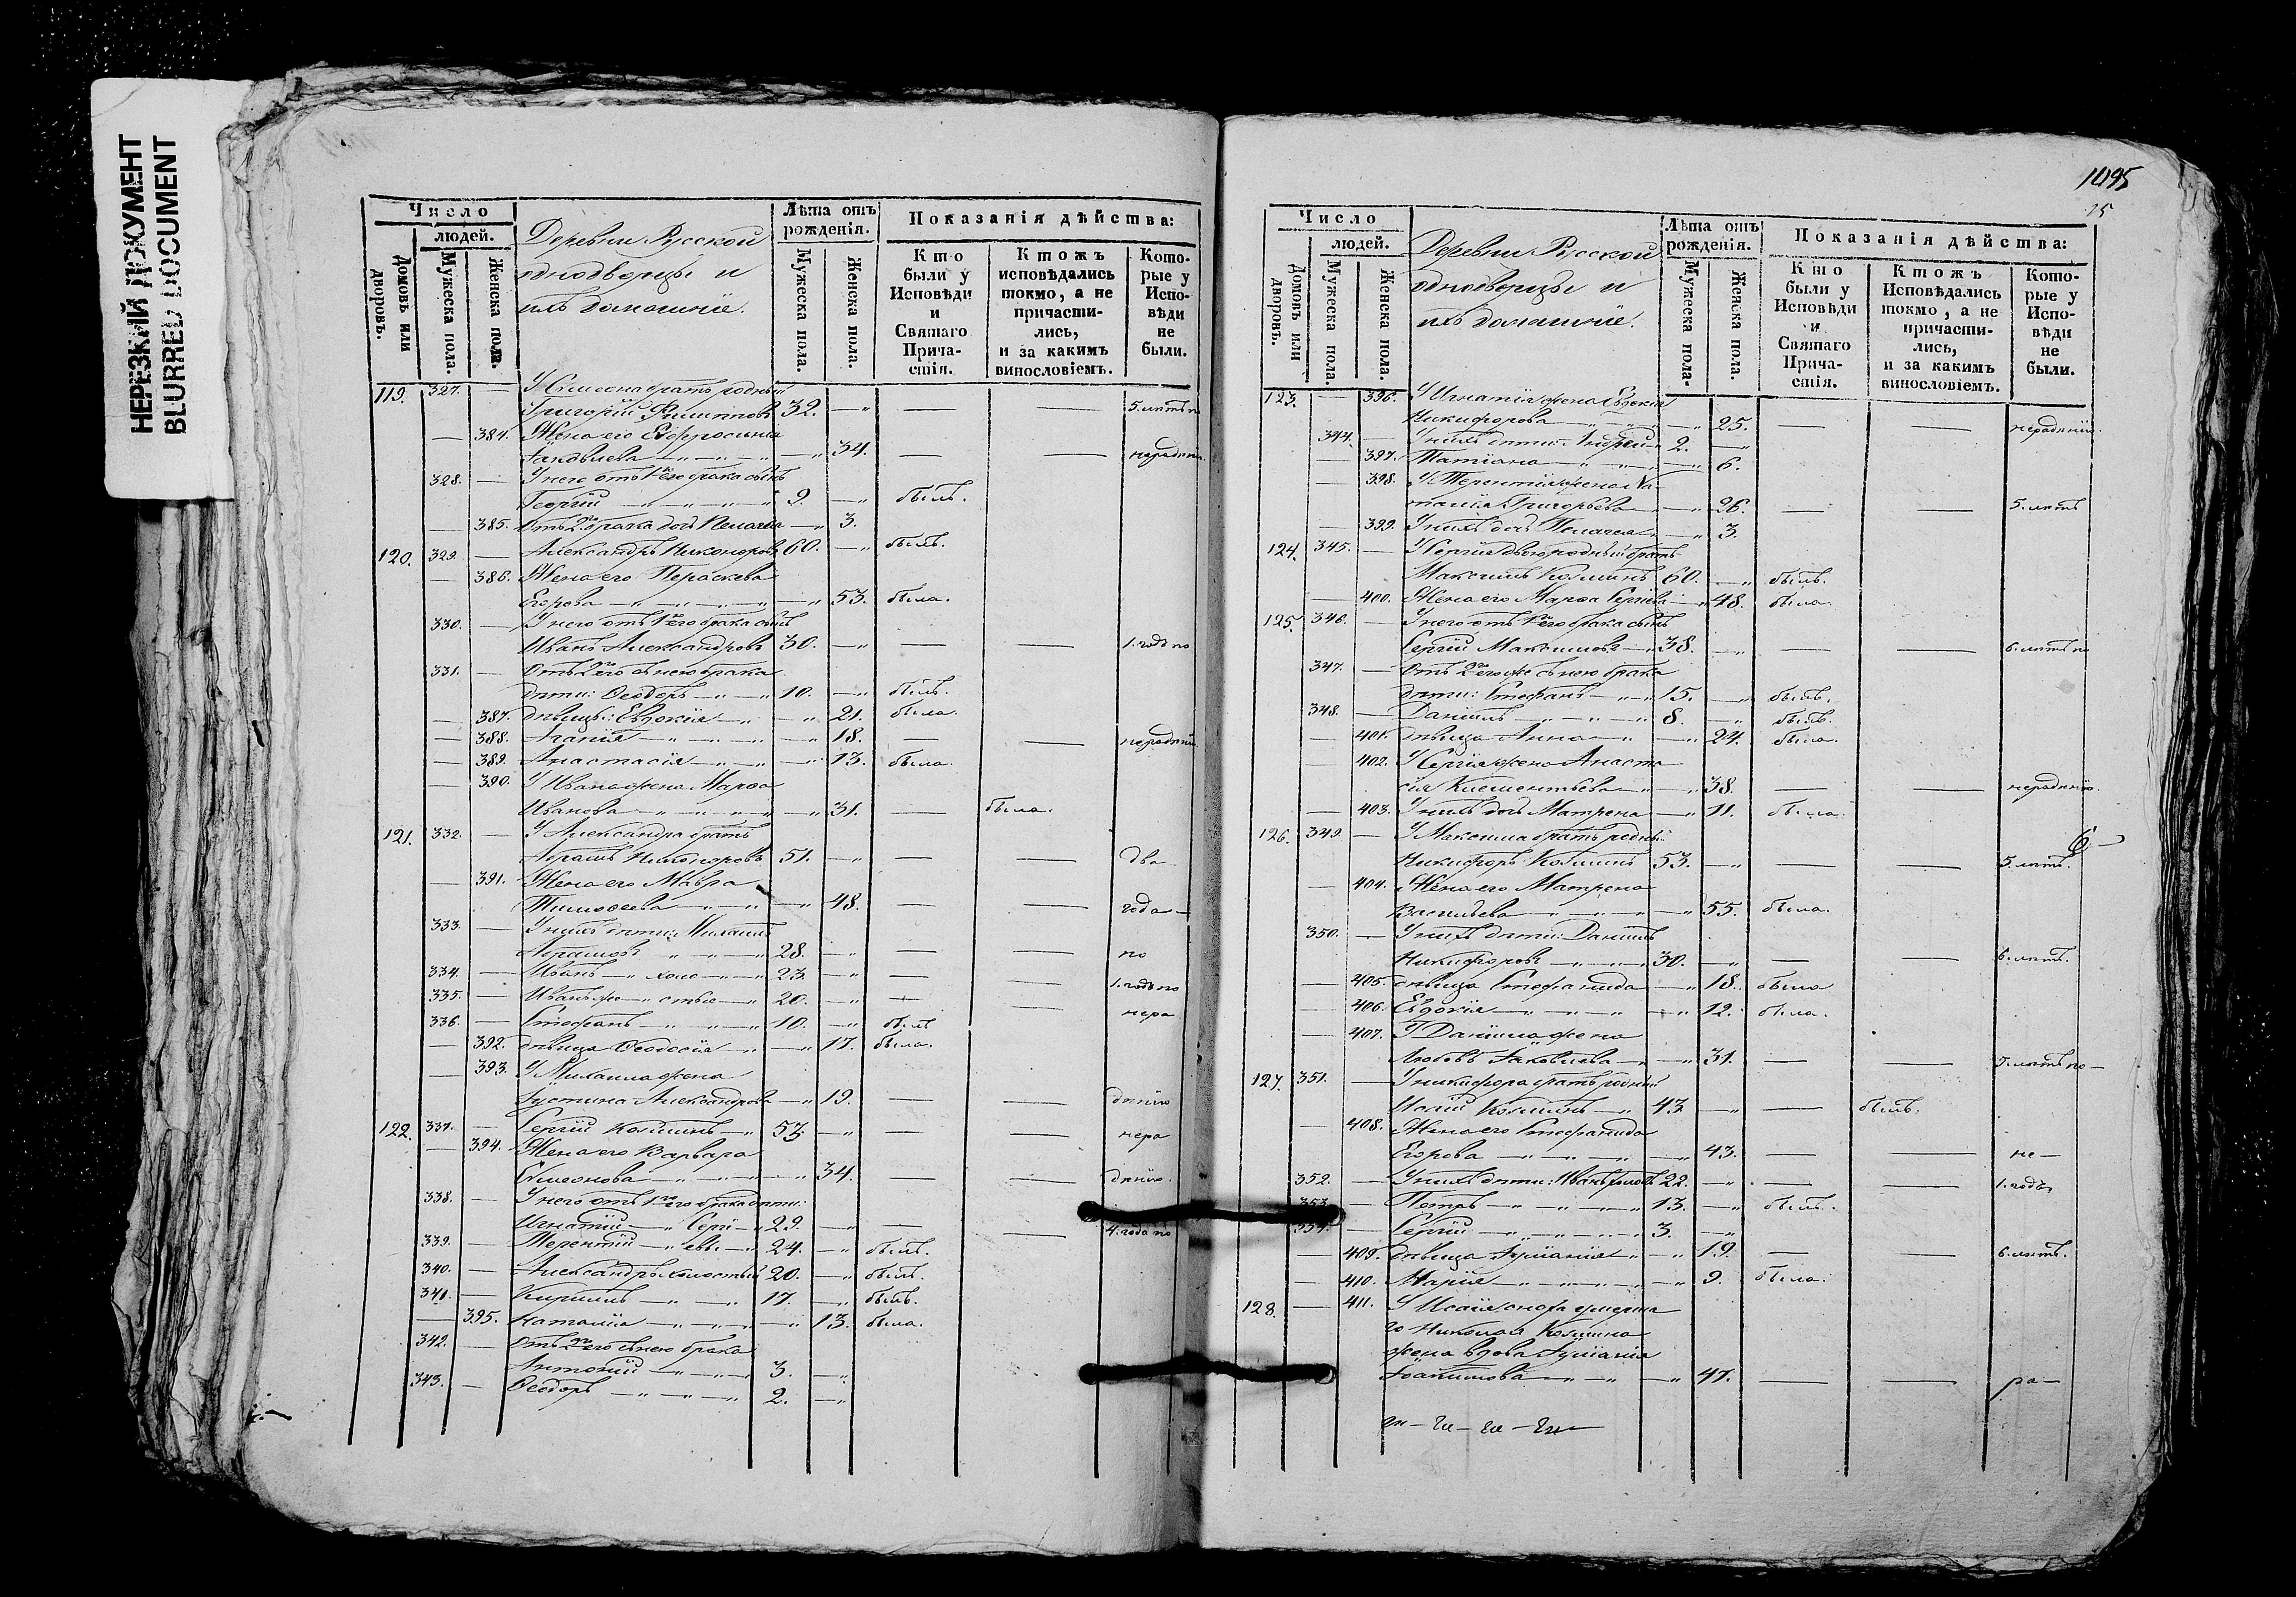 НЕРЕЗКИЙ ДОКУМЕНТ
BLURRED DOCUMENT
Число людей.
Домовъ или дворовъ.
Мужеска пола.
Женска пола.
Деревни Русской
однодворцы и
ихъ домашніе.
Лѣта отъ рожденія.
Мужеска пола.
Женска пола.
Показанія дѣйства:
Кто были у Исповѣди и Святаго Причастія.
Ктожъ исповѣдались токмо, а не причастились, и за какимъ винословіемъ.
Которые у Исповѣди не были.
119. 327. — У Симеона братъ родный
Григорій Филиповъ 32. — — — 5. лѣтъ по
— 384. Жена его Евфросинія
Іаковлева — 34. — — нерадѣнію
328. — У него отъ 1го брака сынъ
Георгій — 9. — былъ.
— 385. Отъ 2го брака дочь Пелагея — 3.
120. 329. — Александръ Никоноровъ 60. — былъ.
— 386. Жена его Параскева
Егорова — 53. была.
330. — У него отъ 1го брака сынъ
Иванъ Александровъ 30. — — — 1. годъ по
331. — Отъ 2го съ нею брака
дѣти: Ѳеодоръ — 10. — былъ.
— 387. дѣвицы: Евдокія — 21. была.
— 388. Агапія — 18. — — нерадѣнію
— 389. Анастасія — 13. была.
— 390. У Ивана жена Марѳа
Иванова — 31. — была.
121. 332. — У Александра братъ
Абрамъ Никоноровъ 51. — — — два
— 391. Жена его Мавра
Тимоѳеева — 48. — — года
333. — У нихъ дѣти: Михаилъ
Абрамовъ — 28. — — — по
334. — Иванъ — холо — 23. — — — 1. годъ по
335. — Иванъ же — стые — 20. — — — нера
336. — Стефанъ — 10. — былъ
— 392. дѣвица Ѳеодосія — 17. была.
— 393. У Михаила жена
Іустина Александрова — 19. — — дѣнію
122. 337. — Сергій Козминъ — 57. — — — нера
— 394. Жена его Варвара
Симеонова — 34. — — дѣнію.
338. — У него отъ 1го брака дѣти:
Игнатій — Сергі — 29. — — — 4. года по
339. — Терентій — евы — 24. — былъ.
340. — Александръ холостый 20. — былъ.
341. — Кириллъ — 17. — былъ.
— 395. Наталія — 13. была.
342. — Отъ 2го съ нею брака
Антоній — 3. —
343. — Ѳеодоръ — 2. —
1495
15
Число людей.
Домовъ или дворовъ.
Мужеска пола.
Женска пола.
Деревни Русской
однодворцы и
ихъ домашніе.
Лѣта отъ рожденія.
Мужеска пола.
Женска пола.
Показанія дѣйства:
Кто были у Исповѣди и Святаго Причастія.
Ктожъ Исповѣдались токмо, а не причастились, и за какимъ винословіемъ.
Которые у Исповѣди не были.
123. — 396. У Игнатія жена Евдокія
Никифорова — 25. — — нерадѣнію.
344. — У нихъ дѣти: Андрей 2. —
— 397. Татіана — 6.
— 398. У Терентія жена На-
талія Григорьева — 26. — — 5. лѣтъ
— 399. У нихъ дочь Пелагея — 3.
124. 345. — У Сергія двоюродный братъ
Максимъ Козминъ 60. — былъ.
— 400. Жена его Марѳа Сергіева — 48. была.
125. 346. — У него отъ 1го брака сынъ
Сергій Максимовъ — 38. — — — 6. лѣтъ по
347. — Отъ 2го же съ нею брака
дѣти: Стефанъ — 15. — былъ.
348. — Даніилъ — 8. — былъ.
— 401. дѣвица Анна — 24. была.
— 402. У Сергія жена Анаста
сія Климентьева — 38. — — нерадѣнію.
— 403. У нихъ дочь Матрена — 11. была.
126. 349. — У Максима братъ родный
Никифоръ Козминъ 53. — — — 5. лѣтъ.
— 404. Жена его Матрена
Васильева — 55. была.
350. — У нихъ дѣти: Даніилъ
Никифоровъ — 30. — — — 6. лѣтъ.
— 405. дѣвица Стефанида — 18. была
— 406. Евдокія — 12. была.
— 407. У Даніила жена
Любовь Іаковлева — 31. — — 5. лѣтъ по —
127. 351. — У Никифора братъ родный
Исаій Козминъ — 43. — — былъ.
— 408. Жена его Стефанида
Егорова — 43. — — не —
352. — У нихъ дѣти: Иванъ холос 22. — — — 1. годъ
353. — Петръ — 13. — былъ.
354. — Сергій — 3. —
— 409. дѣвица Іуліанія — 19. — — 6. лѣтъ.
— 410. Марія — 9. была.
128. — 411. У Исаія сноха умерша
го Николая Козмина
жена вдова Іуліанія
Іоакимова — 47. — — ра —